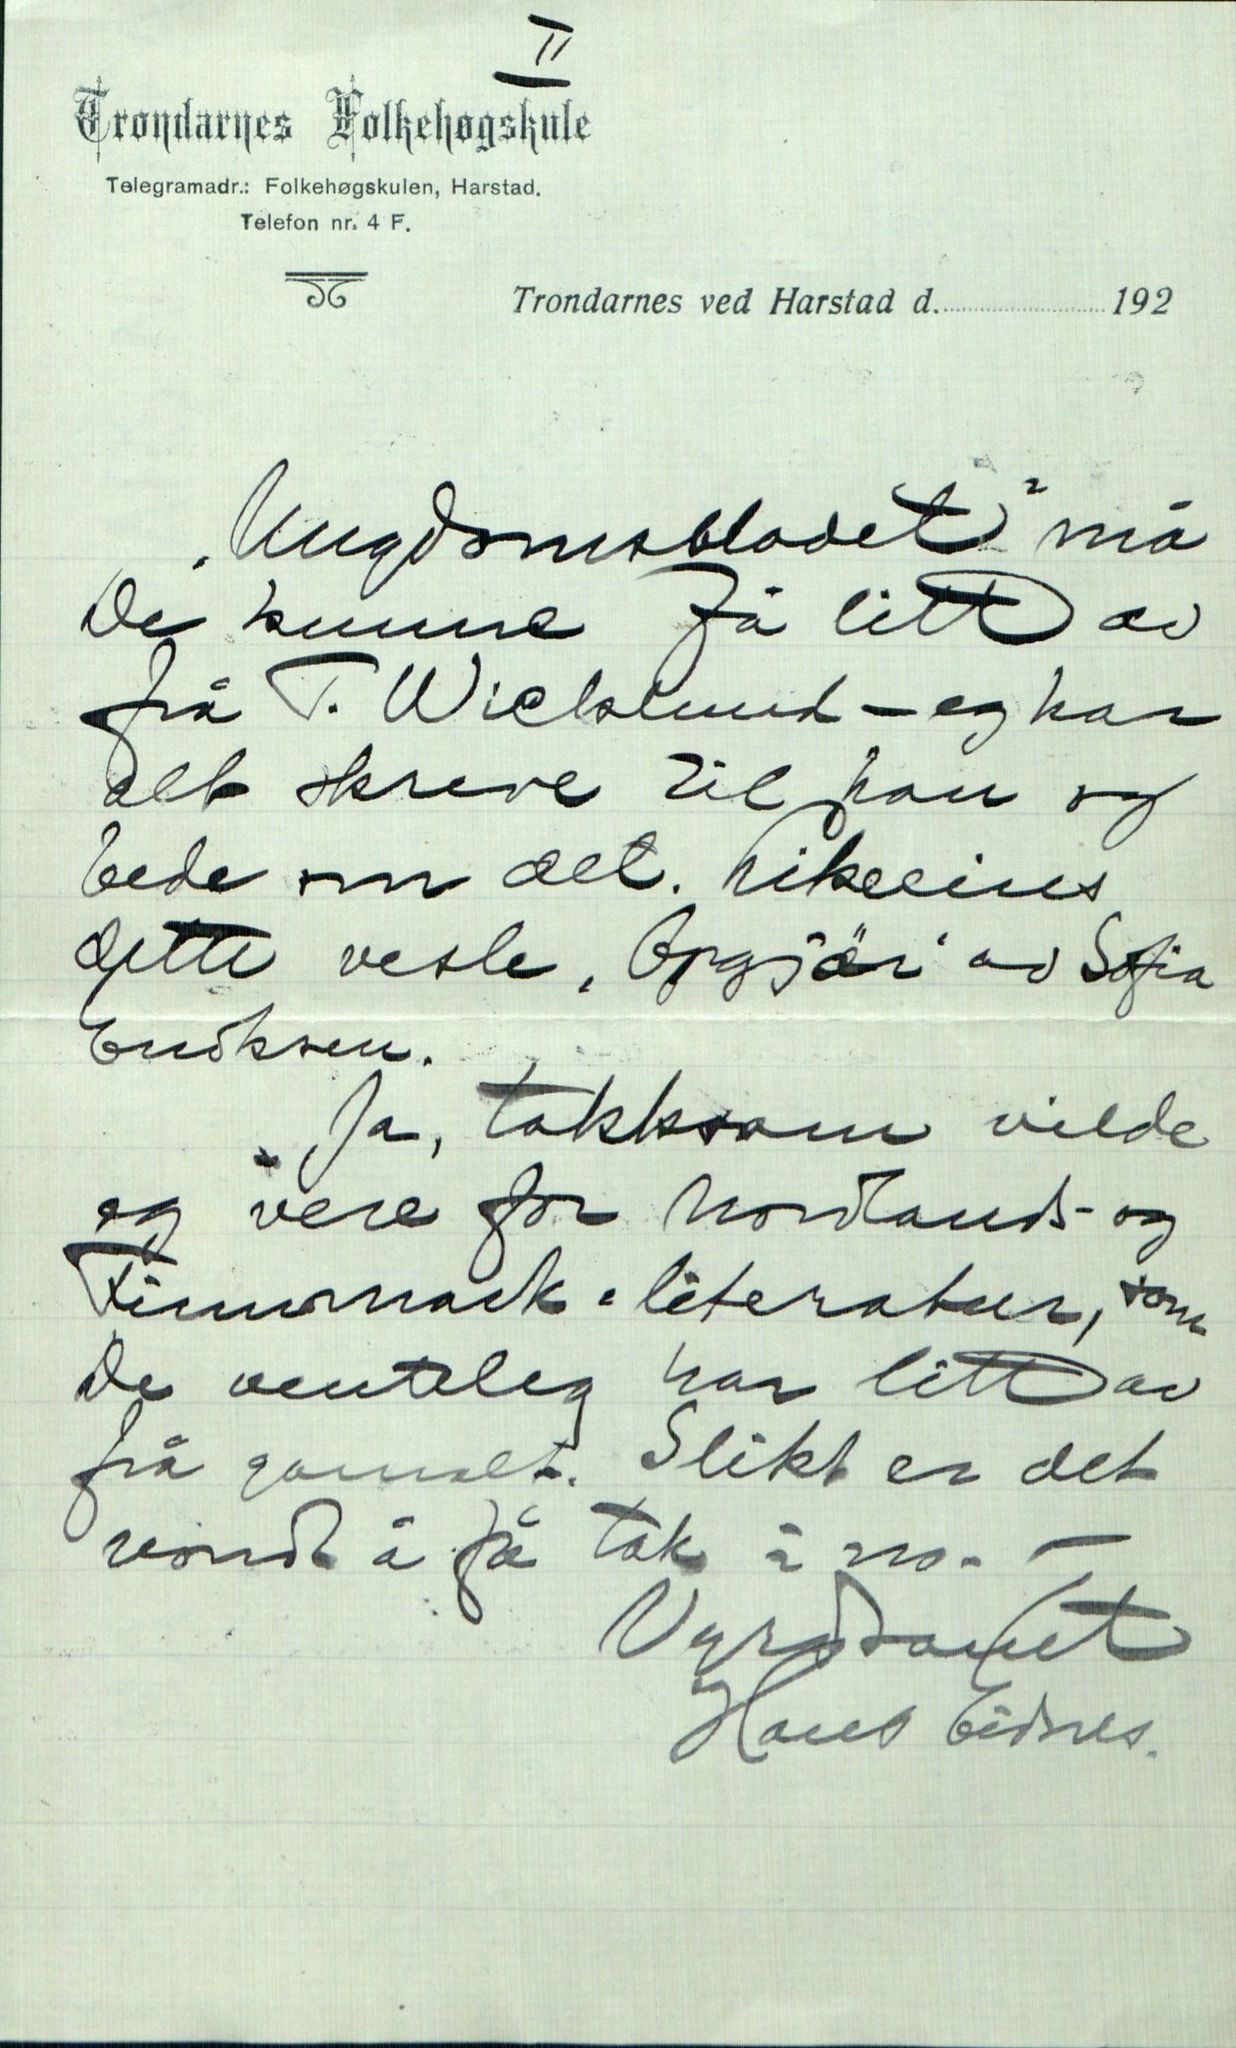 II
Trondarnes Folkehøgskule
Telegramadr.: Folkehøgskulen, Harstad.
Telefon nr. 4 F.
Trondarnes ved Harstad d. 192
„Ungdomsbladet" må
De kunne få litt av
frå T. Wicklund - eg har
alt skreve til han og
bede om det. Likeeins
dette vesle, av Sofia
Eriksen.
Ja, takksam vilde
eg vere for Nordlands- og
Finnmark-literatur, som
De venteleg har litt av
frå gamalt. Slikt er det
vondt å få tak i no. -
Vyrdsamt
Hans Eidnes.